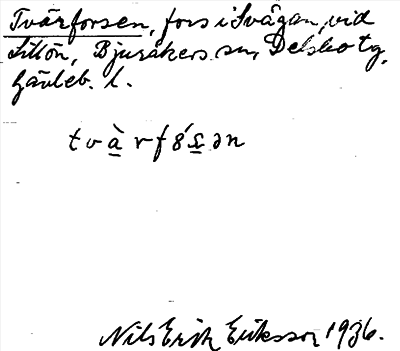 Tvärforsen, fors i Svågan, vid
Bjuråkers sn, Delsbo tg,
Gävleb. l.
Nils Erik Eriksson 1936.